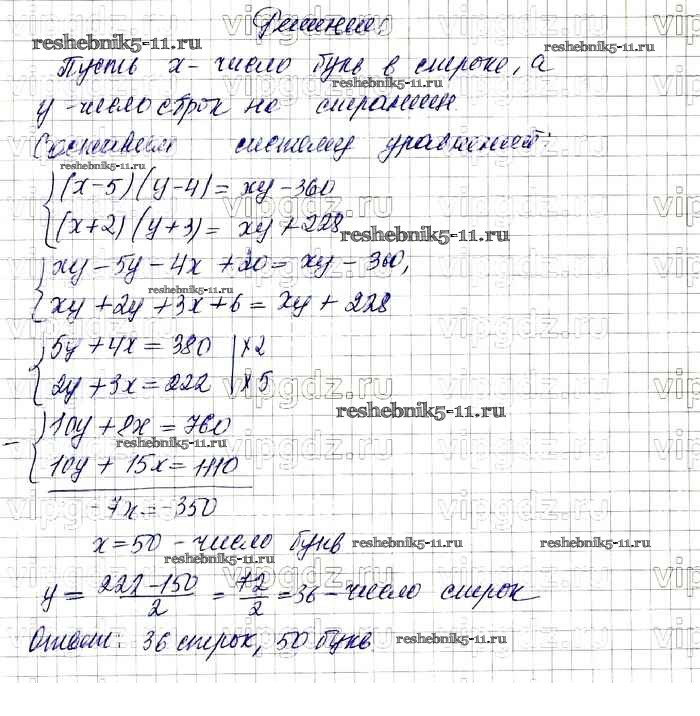 Решение:
reshebnik5-11.ru.
Пусть x - число букв в строке, а
y - число строк на странице
Составим систему уравнений:
reshebnik5-11.ru.
(x-5)(y-4) = xy-360
(x+2)(y+3) = xy+228
reshebnik5-11.ru.
xy-5y-4x+20 = xy-360,
reshebnik5-11.ru.
xy+2y+3x+6 = xy+228
5y+4x=380 | x2
2y+3x=222 | x5
reshebnik5-11.ru.
- 10y+8x=760
reshebnik5-11.ru.
10y+15x=1110
-7x=-350
x=50 - число букв
reshebnik5-11.ru. reshebnik5-11.ru.
reshebnik5-11.ru.
y = (222-150)/2 = 72/2 = 36 - число строк
Ответ: 36 строк, 50 букв
reshebnik5-11.ru.
vipgdz.ru